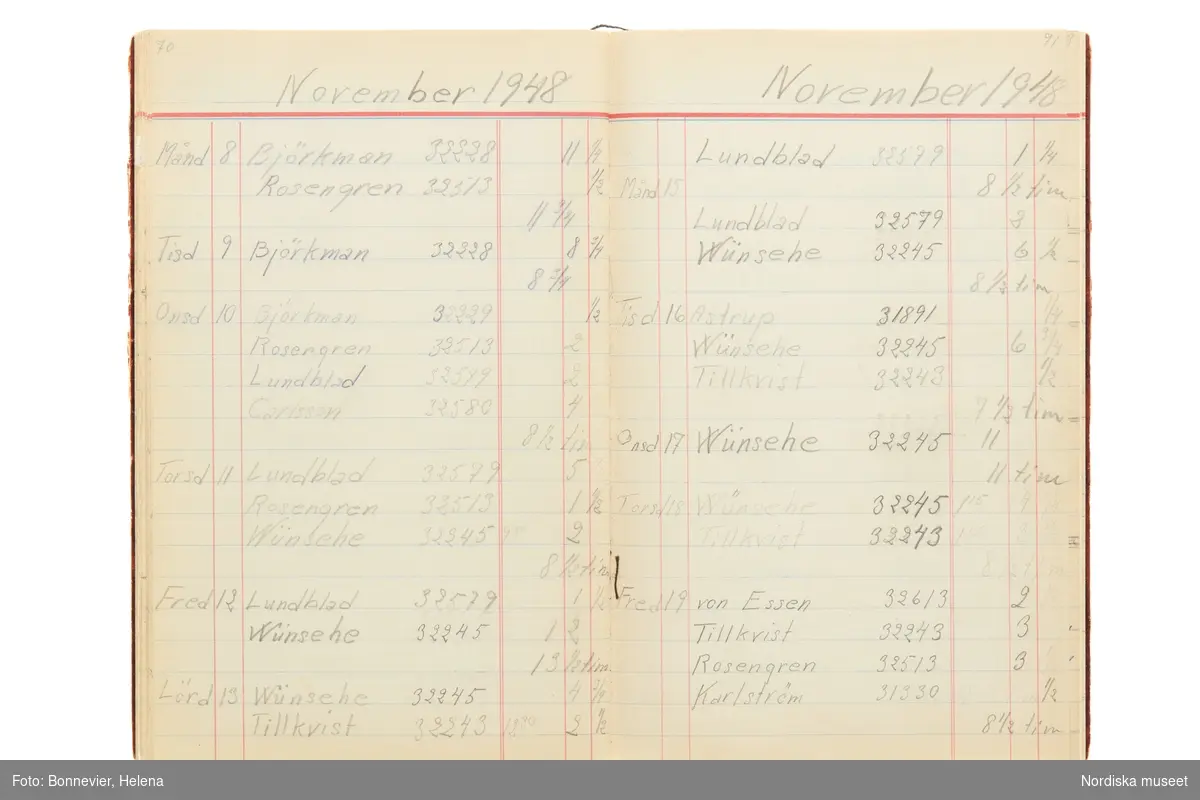 70
November 1948
Månd 8 Björkman 32228 11 1/4
Rosengren 32513 1/2
11 3/4
Tisd 9 Björkman 32228 8 3/4
8 3/4
Onsd 10 Björkman 32229 1/2
Rosengren 32513 2
Lundblad 32579 2
Carlsson 32580 4
8 1/2 tim
Torsd 11 Lundblad 32579 5
Rosengren 32513 1 1/2
Wünsehe 32245 2
8 1/2 tim
Fred 12 Lundblad 32579 1 1/2
Wünsehe 32245 12
13 1/2 tim
Lörd 13 Wünsehe 32245 4 3/4
Tillkvist 32243 2 1/2
November 1948
Lundblad 32579 1 1/4
8 1/2 tim
Månd 15
Lundblad 32579 2
Wünsehe 32245 6 1/2
8 1/2 tim
Tisd 16 Astrup 31891 1/4
Wünsehe 32245 6 3/4
Tillkvist 32243 1/2
7 1/2 tim
Onsd 17 Wünsehe 32245 11
11 tim
Torsd 18 Wünsehe 32245
Tillkvist 32243 3
8 1/2 tim
Fred 19 von Essen 32613 2
Tillkvist 32243 3
Rosengren 32513 3
Karlström 31330 1/2
8 1/2 tim
Foto: Bonnevier, Helena
Nordiska museet